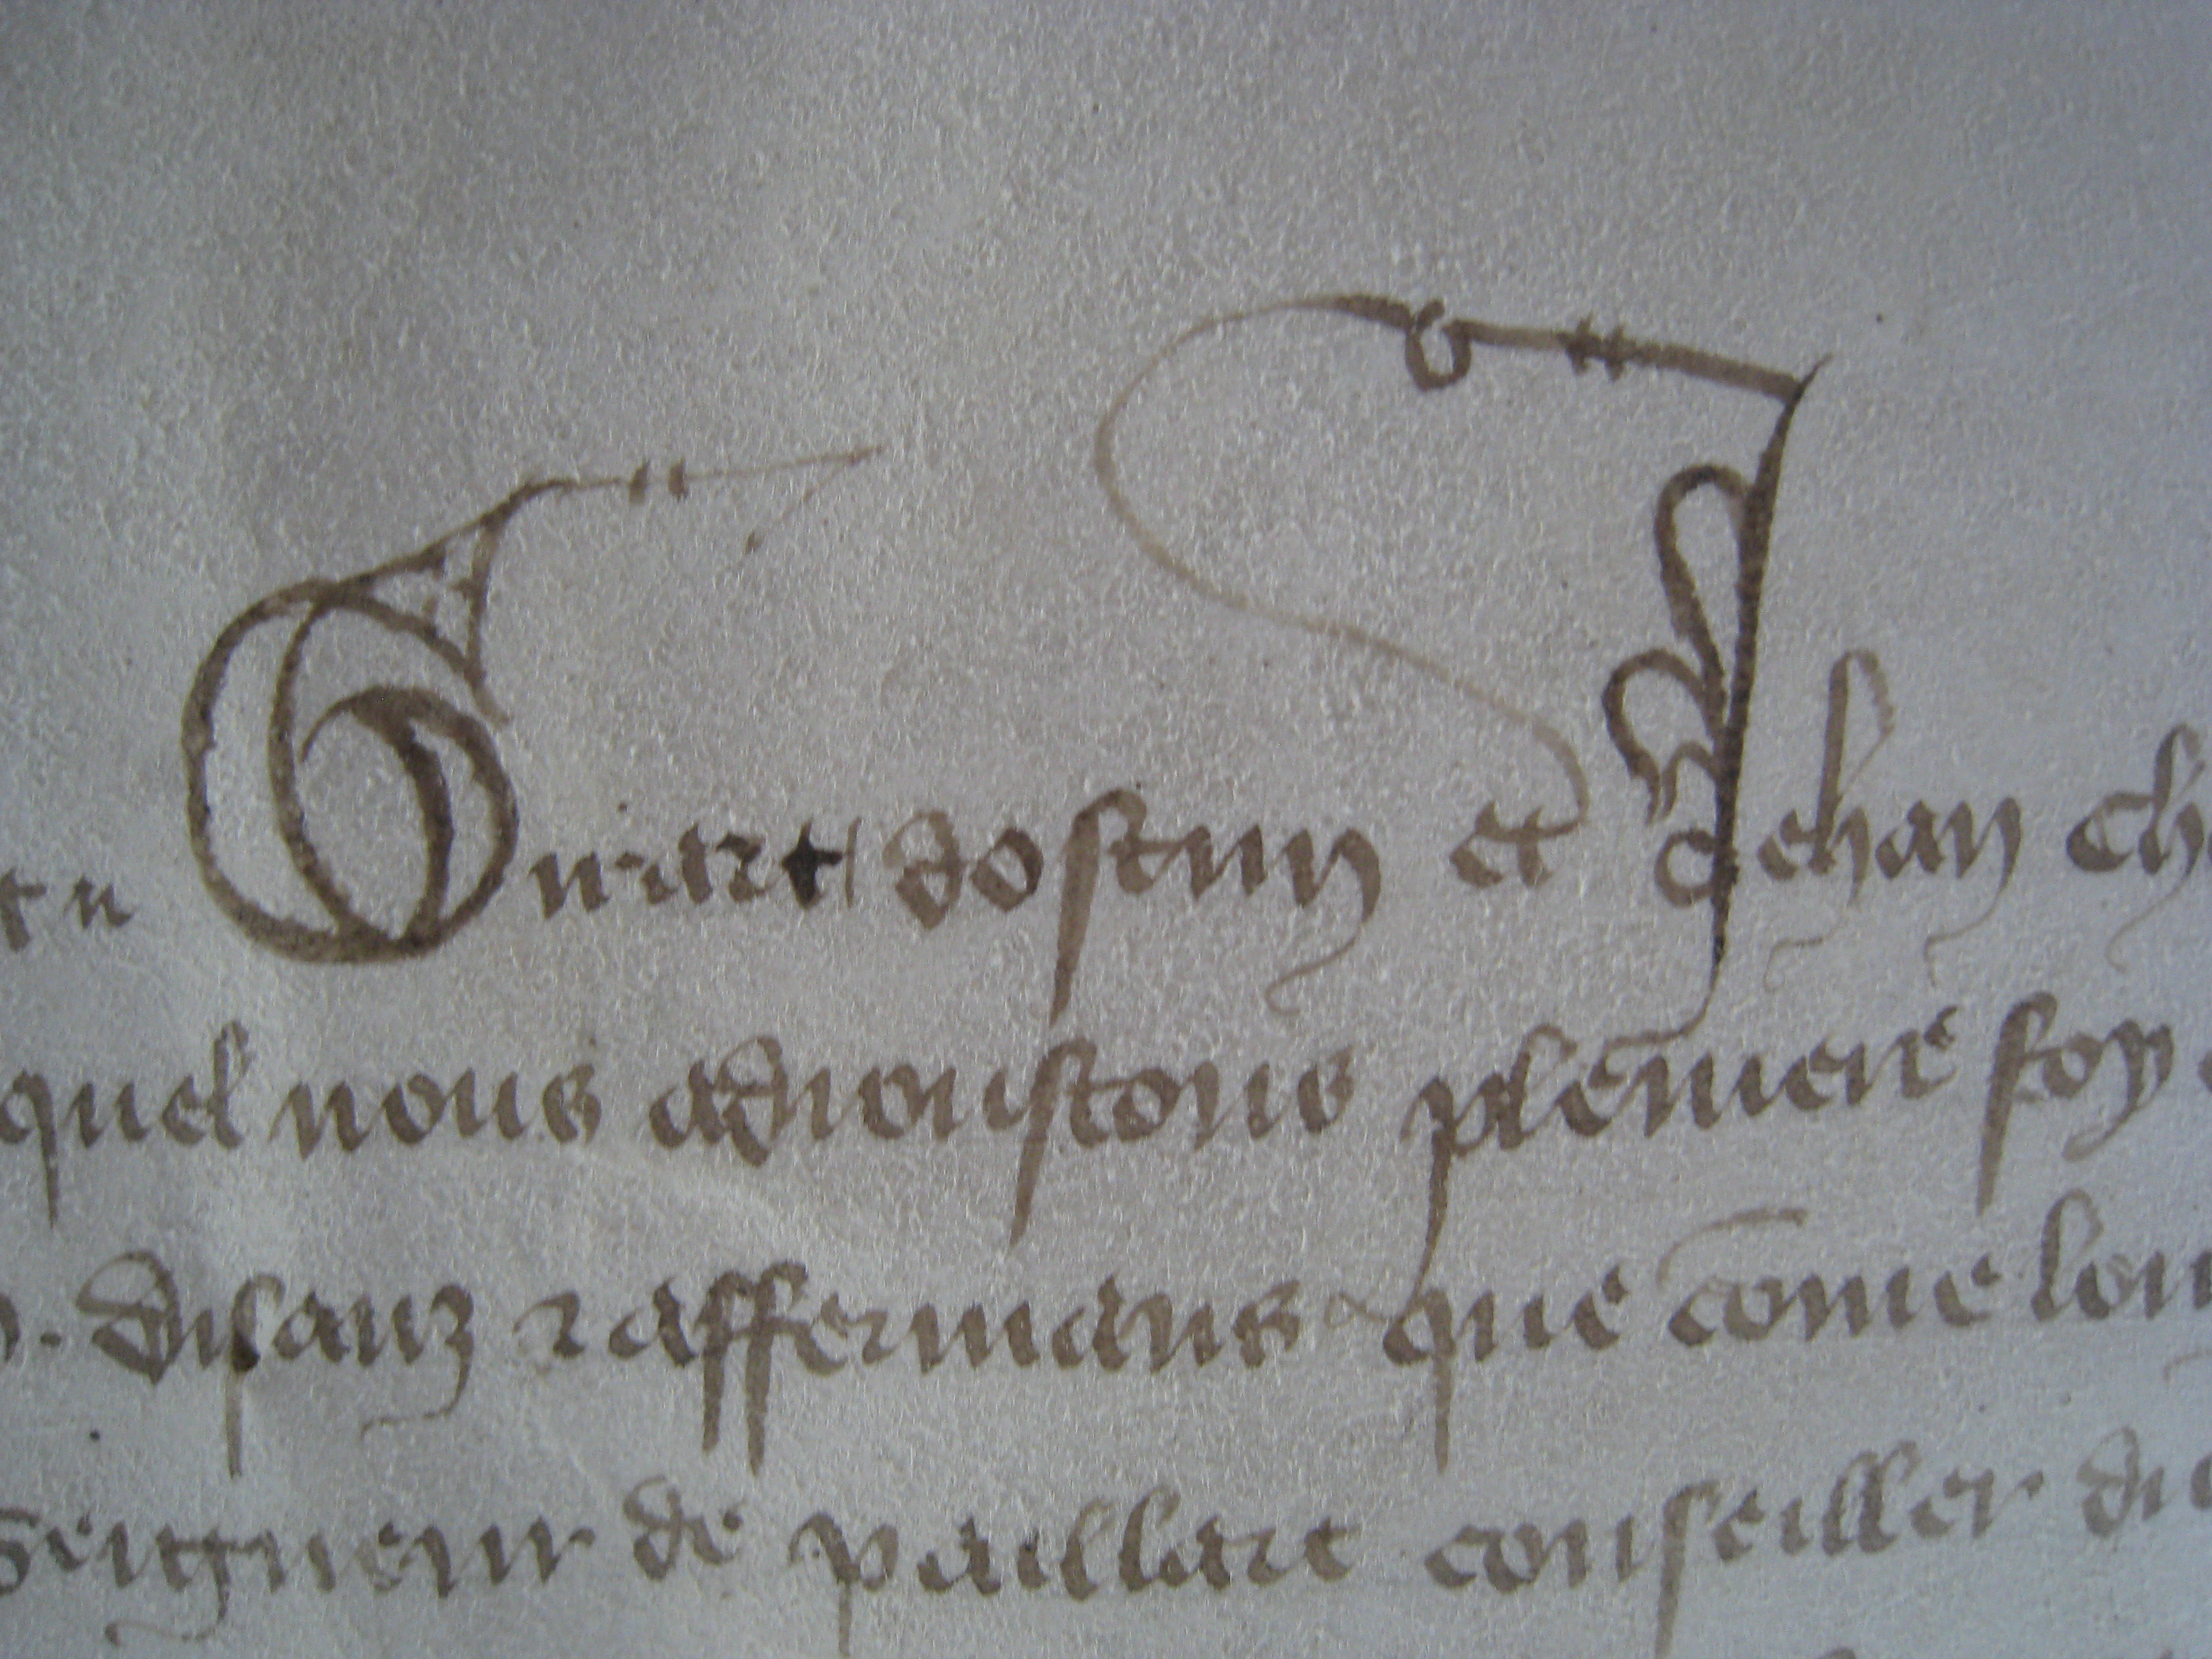 Guiart dostun et Jehan Ch
quel nous adioustons pleniere foy
disanz ⁊ affermans que come lou
Seigneur de paillart conseiller du